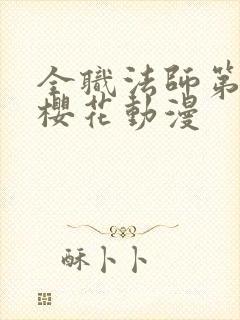 全職法師第
櫻花動漫
酥卜卜